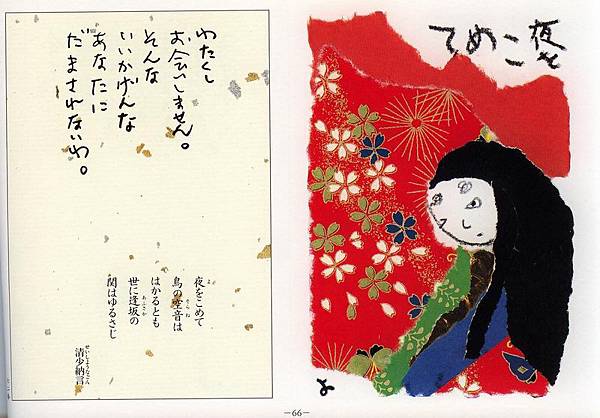 夜を
こめて
わたくし
お会いしません。
そんな
いいかげんな
あなたに
だまされないわ。
よ
夜をこめて
そらね
鳥の空音は
はかるとも
あふさか
世に逢坂の
関はゆるさじ
せいしょうなごん
清少納言
—66—